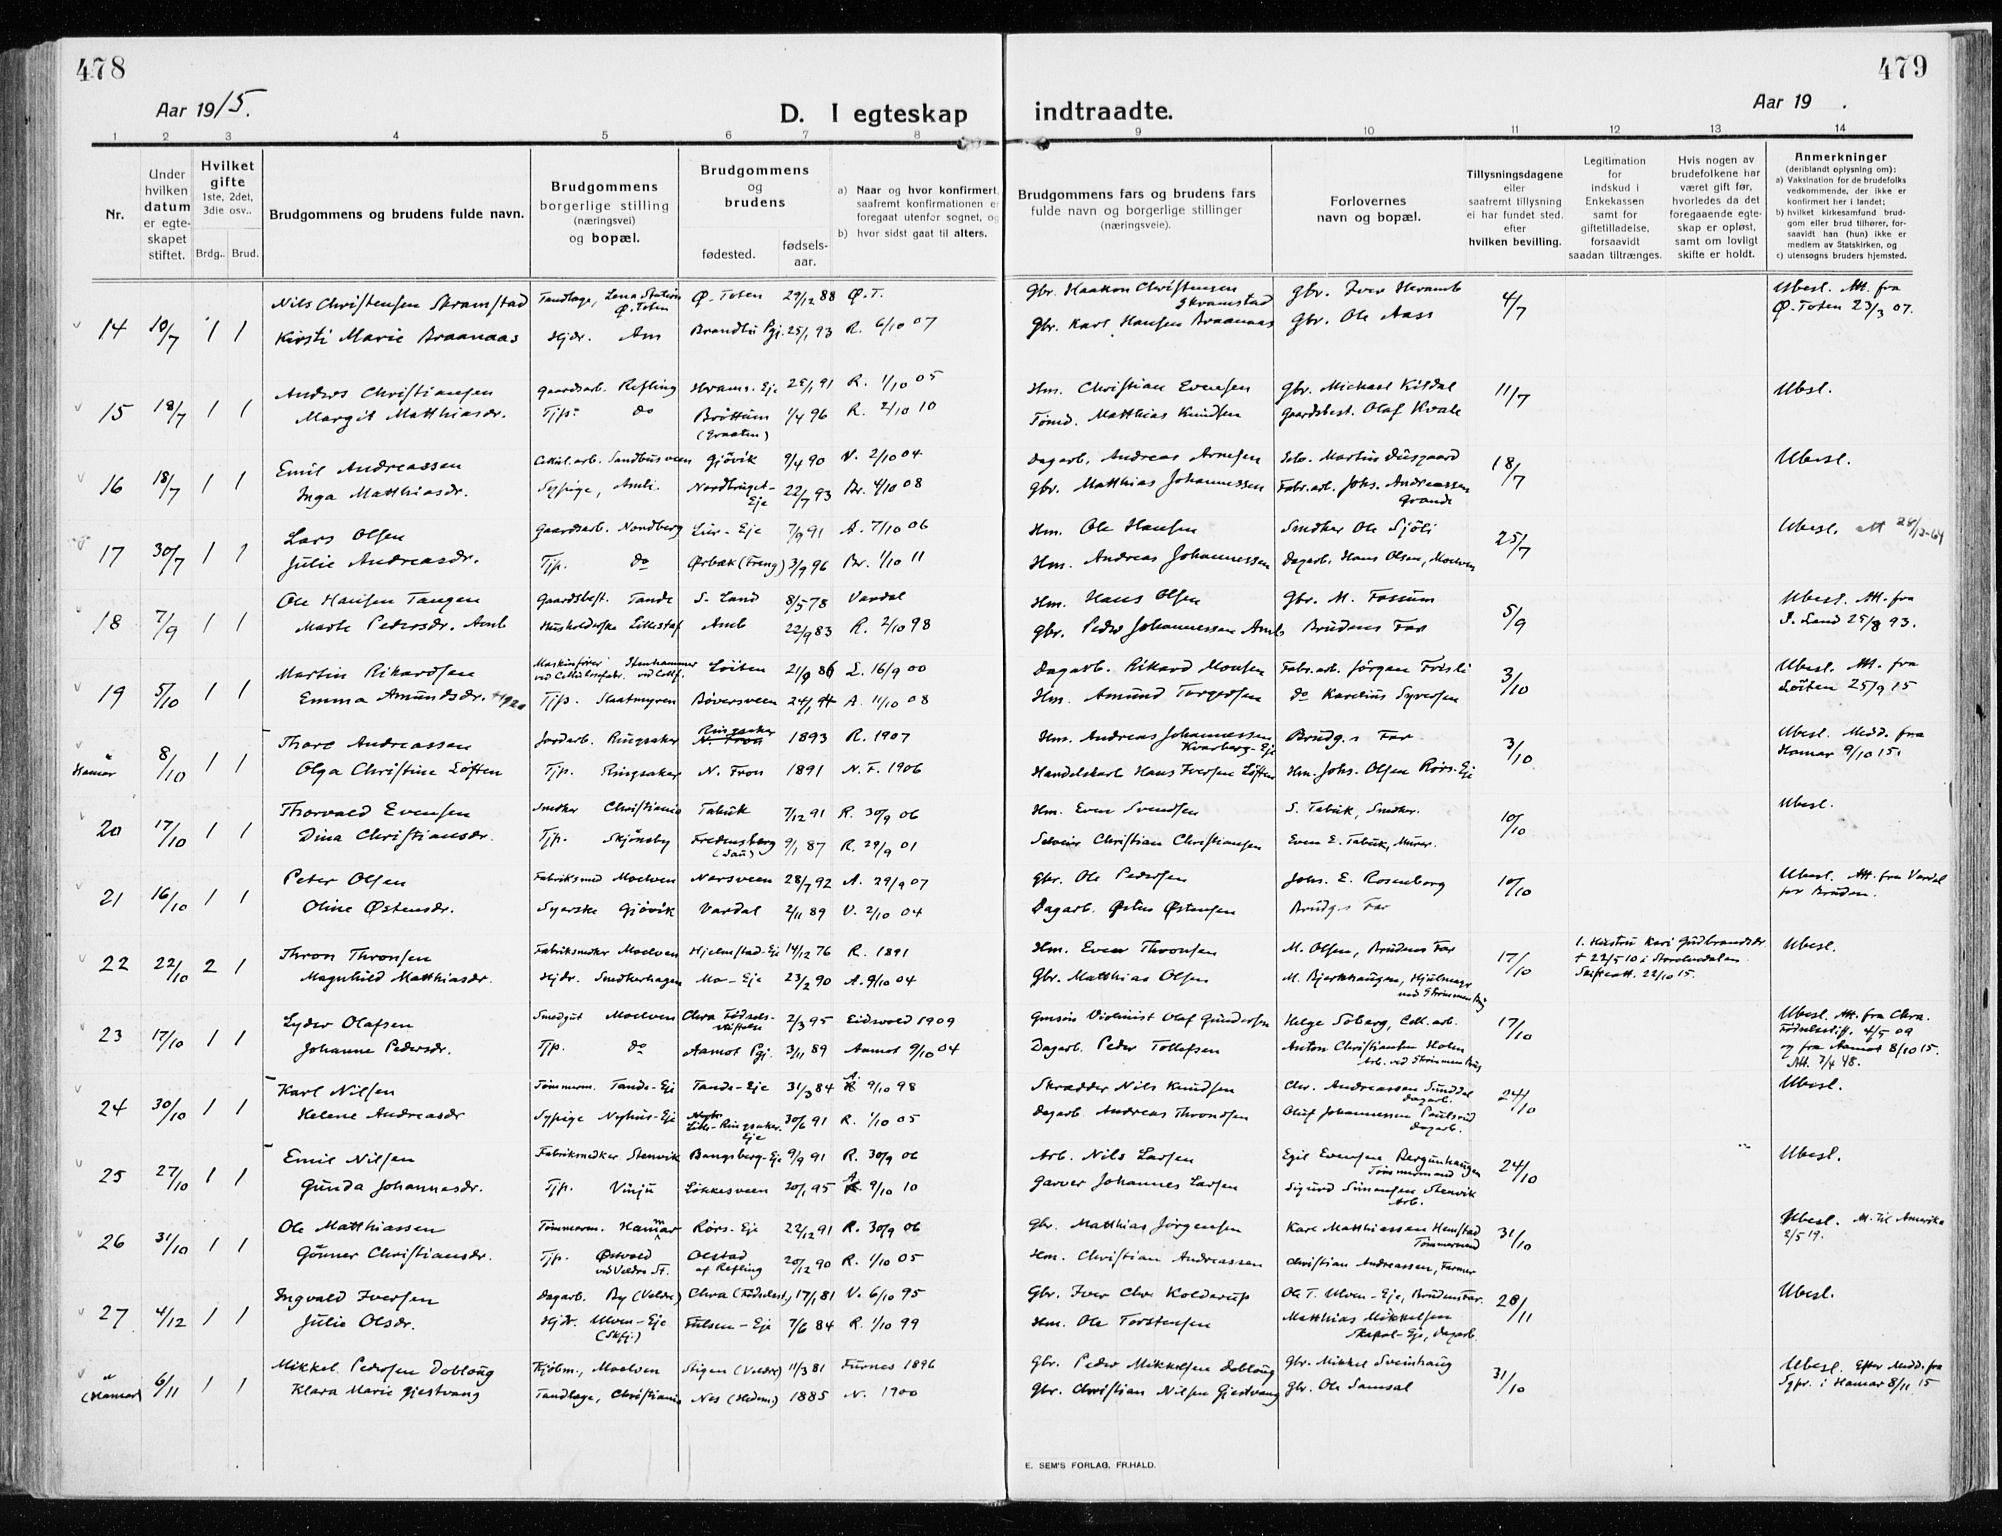 478
479
Aar 1915.
D. I egteskap indtraadte.
Aar 19 .
1 2 3 4 5 6 7 8 9 10 11 12 13 14
Nr.
Under hvilken datum er egteskapet stiftet.
Hvilket gifte 1ste, 2det, 3die osv..
Brdg.. Brud.
Brudgommens og brudens fulde navn.
Brudgommens borgerlige stilling (næringsvei) og bopæl.
Brudgommens og brudens
fødested.
fødsels-aar.
a) Naar og hvor konfirmert, saafremt konfirmationen er foregaat utenfor sognet, og
b) hvor sidst gaat til alters.
Brudgommens fars og brudens fars fulde navn og borgerlige stillinger (næringsveie).
Forlovernes navn og bopæl.
Tillysningsdagene eller saafremt tillysning ei har fundet sted. efter hvilken bevilling.
Legitimation for indskud i Enkekassen samt for giftetilladelse, forsaavidt saadan tiltrænges.
Hvis nogen av brudefolkene har været gift før, hvorledes da det foregaaende egteskap er opløst, samt om lovligt skifte er holdt.
Anmerkninger (deriblandt oplysning om):
a) Vaksination for de brudefolks vedkommende, der ikke er konfirmert her i landet;
b) hvilket kirkesamfund brudgom eller brud tilhører, forsaavidt han (hun) ikke er medlem av Statskirken, og
c) utensogns bruders hjemsted.
Nils Christensen Skramstad Tandlæge, Lena Station Ø. Toten Ø. Toten 29/12 88 Ø.T. Gbr. Haakon Christensen Skramstad Gbr. Iver Heramb Ubesl. Att. fra
14 10/7 1 1 Kirsti Marie Braanaas Hjdr. Am Brandbu Pgj. 25/1 93 R. 6/10 07 Gbr. Karl Hansen Braanaas Gbr. Ole Aass 4/7 Ø. Toten 23/3 07.
Anders Christiansen Gaardsarb. Refling Hvams-Eje 25/1 91 R. 1/10 05 Hm. Christian Evensen Gbr. Michael Kildal 11/7 Ubesl.
15 18/7 1 1 Margit Matthiasdr. Tjp. do Brøttum (Graaten) 1/4 96 R. 2/10 10 Tømd. Matthias Knudsen Gaardsbest. Olaf Kvale
Emil Andreassen Cellul.arb. Sandbusveen Gjøvik 9/4 90 V. 2/10 04 Dagarb. Andreas Arnesen Selv. Martin 18/7 Ubesl.
16 18/7 1 1 Inga Matthiasdr. Sypige, Amli. Nordbruget-Eje 22/7 93 Br. 4/10 08 Gbr. Matthias Johannessen Fabr.arb. Johs. Andreassen Grande
Lars Olsen Gaardsarb. Nordberg Lur-Eje 7/9 91 A. 7/10 06 Hm. Ole Hansen Snedker Ole Sjøli 25/7 Ubesl. Att 28/12-64
17 30/7 1 1 Julie Andreasdr. Tjp. do Ørbæk (Freng) 3/9 96 Br. 1/10 11 Hm. Andreas Johannessen Dagarb. Hans Olsen, Moelven
Ole Hansen Tangen Gaardsbest. Tande S. Land 8/5 78 Vardal Hm. Hans Olsen Gbr. M. Fossum 5/9 Ubesl. Att. fra
18 7/9 1 1 Marte Pedersdr. Amb Husholderske Lillestaf Amb 22/9 83 R. 2/10 98 Gbr. Peder Johannessen Amb Brudens Far S. Land 25/8 93.
Martin Rikardsen Maskinfører ved Cellulosefabr. Stenhammer ved Cellf. Løiten 21/9 86 L. 16/9 00 Dagarb. Rikard Monsen Fabr.arb. Jørgen Frisli 3/10 Ubesl. Att. fra
19 5/10 1 1 Emma Amundsdr. Tjp. Slaatmyren Bøversveen 24/1 94 A. 11/10 08 Hm. Amund Torgersen do Karelius Syversen Løiten 25/9 15
Thore Andreassen Jordarb. Ringsaker Ringsaker N. Fron 1893 R. 1907 Hm. Andreas Johannessen Kvarberg-Eje Brudg.s Far 3/10 Ubesl. Medd. fra
Hamar 8/10 1 1 Olga Christine Løften Tjp. Ringsaker N. Fron 1891 N.F. 1906 Handelskarl Hans Iversen Løften Hm. Johs. Olsen Rørs-Eje Hamar 9/10 15.
Thorvald Evensen Snedker Christiania Tabuk 7/12 91 R. 30/9 06 Hm. Even Svendsen S. Tabuk, Snedker. 10/10 Ubesl.
20 17/10 1 1 Dina Christiansdr. Tjp. Skjønsby Fredensberg (Sau) 9/1 87 R. 29/9 01 Selveier Christian Christiansen Even E. Tabuk, Murer.
Peter Olsen Fabriksmed Moelven Narsveen 28/7 92 A. 29/9 07 Gbr. Ole Pedersen Johs. E. Rosenborg 10/10 Ubesl. Att. fra Vardal
21 16/10 1 1 Oline Østensdr. Syerske Gjøvik Vardal 2/11 89 V. 2/10 04 Dagarb. Østen Østensen Brudg.s Far for Bruden.
Thron Thronsen Fabriksnedker Moelven Hjelmstad-Eje 14/12 76 R. 1891 Hm. Even Thronsen M. Olsen, Brudens Far 17/10 1. Hustru Kari Gudbrandsdr. Ubesl.
22 22/10 2 1 Magnhild Matthiasdr. Hjdr. Snedkerhagen Mo-Eje 23/2 90 A. 9/10 04 Gbr. Matthias Olsen M. Bjerkhaugen, Hjulmager ved Strømmen Brug † 22/5 10 i Storelvdalen. Skifteatt. 22/10 15.
Lyder Olafsen Smedgut Moelven Chra Fødselsstiftelse 2/3 95 Eidsvold 1909 Violinist Olaf Gundersen Helge Soberg, Cell.arb. 17/10 Ubesl. Att. fra Chra.
23 17/10 1 1 Johanne Pedersdr. Tjp. do Aamot Pgj. 3/11 89 Aamot 9/10 04 Dagarb. Peder Tollefsen Anton Christiansen Holen Arb. ved Strømmen Brug Fødselsstift. 4/5 09 og fra Aamot 8/10 15. Att. 7/4 48.
Karl Nilsen Tømmerm. Tande-Eje Tande-Eje 31/3 84 A. 9/10 98 Skrædder Nils Knudsen Chr. Andreassen Sunddal Dagarb. 24/10 Ubesl.
24 30/10 1 1 Helene Andreasdr Sypige Nyhus-Eje Lille-Ringsaker Eje 30/6 91 R. 1/10 05 Dagarb. Andreas Throndsen Oluf Johannessen Paulsrud Dagarb.
Emil Nilsen Fabriksnedker Stenvik Bangsberg-Eje 9/9 91 R. 30/9 06 Arb. Nils Larsen Egil Evensen Bergunhaugen Tømmermand 24/10 Ubesl.
25 27/10 1 1 Gunda Johannesdr. Tjp. Vinju Løkkesveen 20/1 95 A. 9/10 10 Garver Johannes Larsen Sigurd Simensen Stenvik Arb.
Ole Matthiassen Tømmerm. Hammar Rørs-Eje 22/12 91 R. 30/9 06 Gbr. Matthias Jørgensen Kare Matthiassen Hemstad Tømmermand 31/10 Ubesl. Att. til Amerika
26 31/10 1 1 Gunner Christiansdr. Tjp. Østvold ved Veldre St. Olstad af Refling 20/12 90 R. 1/10 05 Hm. Christian Andreassen Christian Andreassen, Farmer 2/5 19.
Ingvald Iversen Dagarb. By (Veldre) Chra (Fødselsst.) 17/1 81 V. 6/10 95 Gbr. Iver Chr. Kolderup Ole T. Ulven-Eje, Brudens Far. 28/11 Ubesl.
27 4/12 1 1 Julie Olsdr. Hjdr. Ulven-Eje (Skfj.) Fulsen-Eje 7/6 84 R. 1/10 99 Hm. Ole Torstensen Matthias Mikkelsen Skapal-Eje, Dagarb.
Mikkel Pedersen Dobloug Kjøbm., Moelven Stigen (Veldre) 11/3 81 Furnes 1896 Gbr. Peder Mikkelsen Dobloug Gbr. Mikkel Sveinhaug 31/10 Ubesl. Efter Medd. fra
(Hamar) 6/11 1 1 Klara Marie Gjestvang Tandlæge, Christiania Nes (Hedm.) 1885 N. 1900 Gbr. Christian Nilsen Gjestvang Gbr. Ole Samsal Sgpr. i Hamar 8/11 15
E. SEM'S FORLAG, FR.HALD.